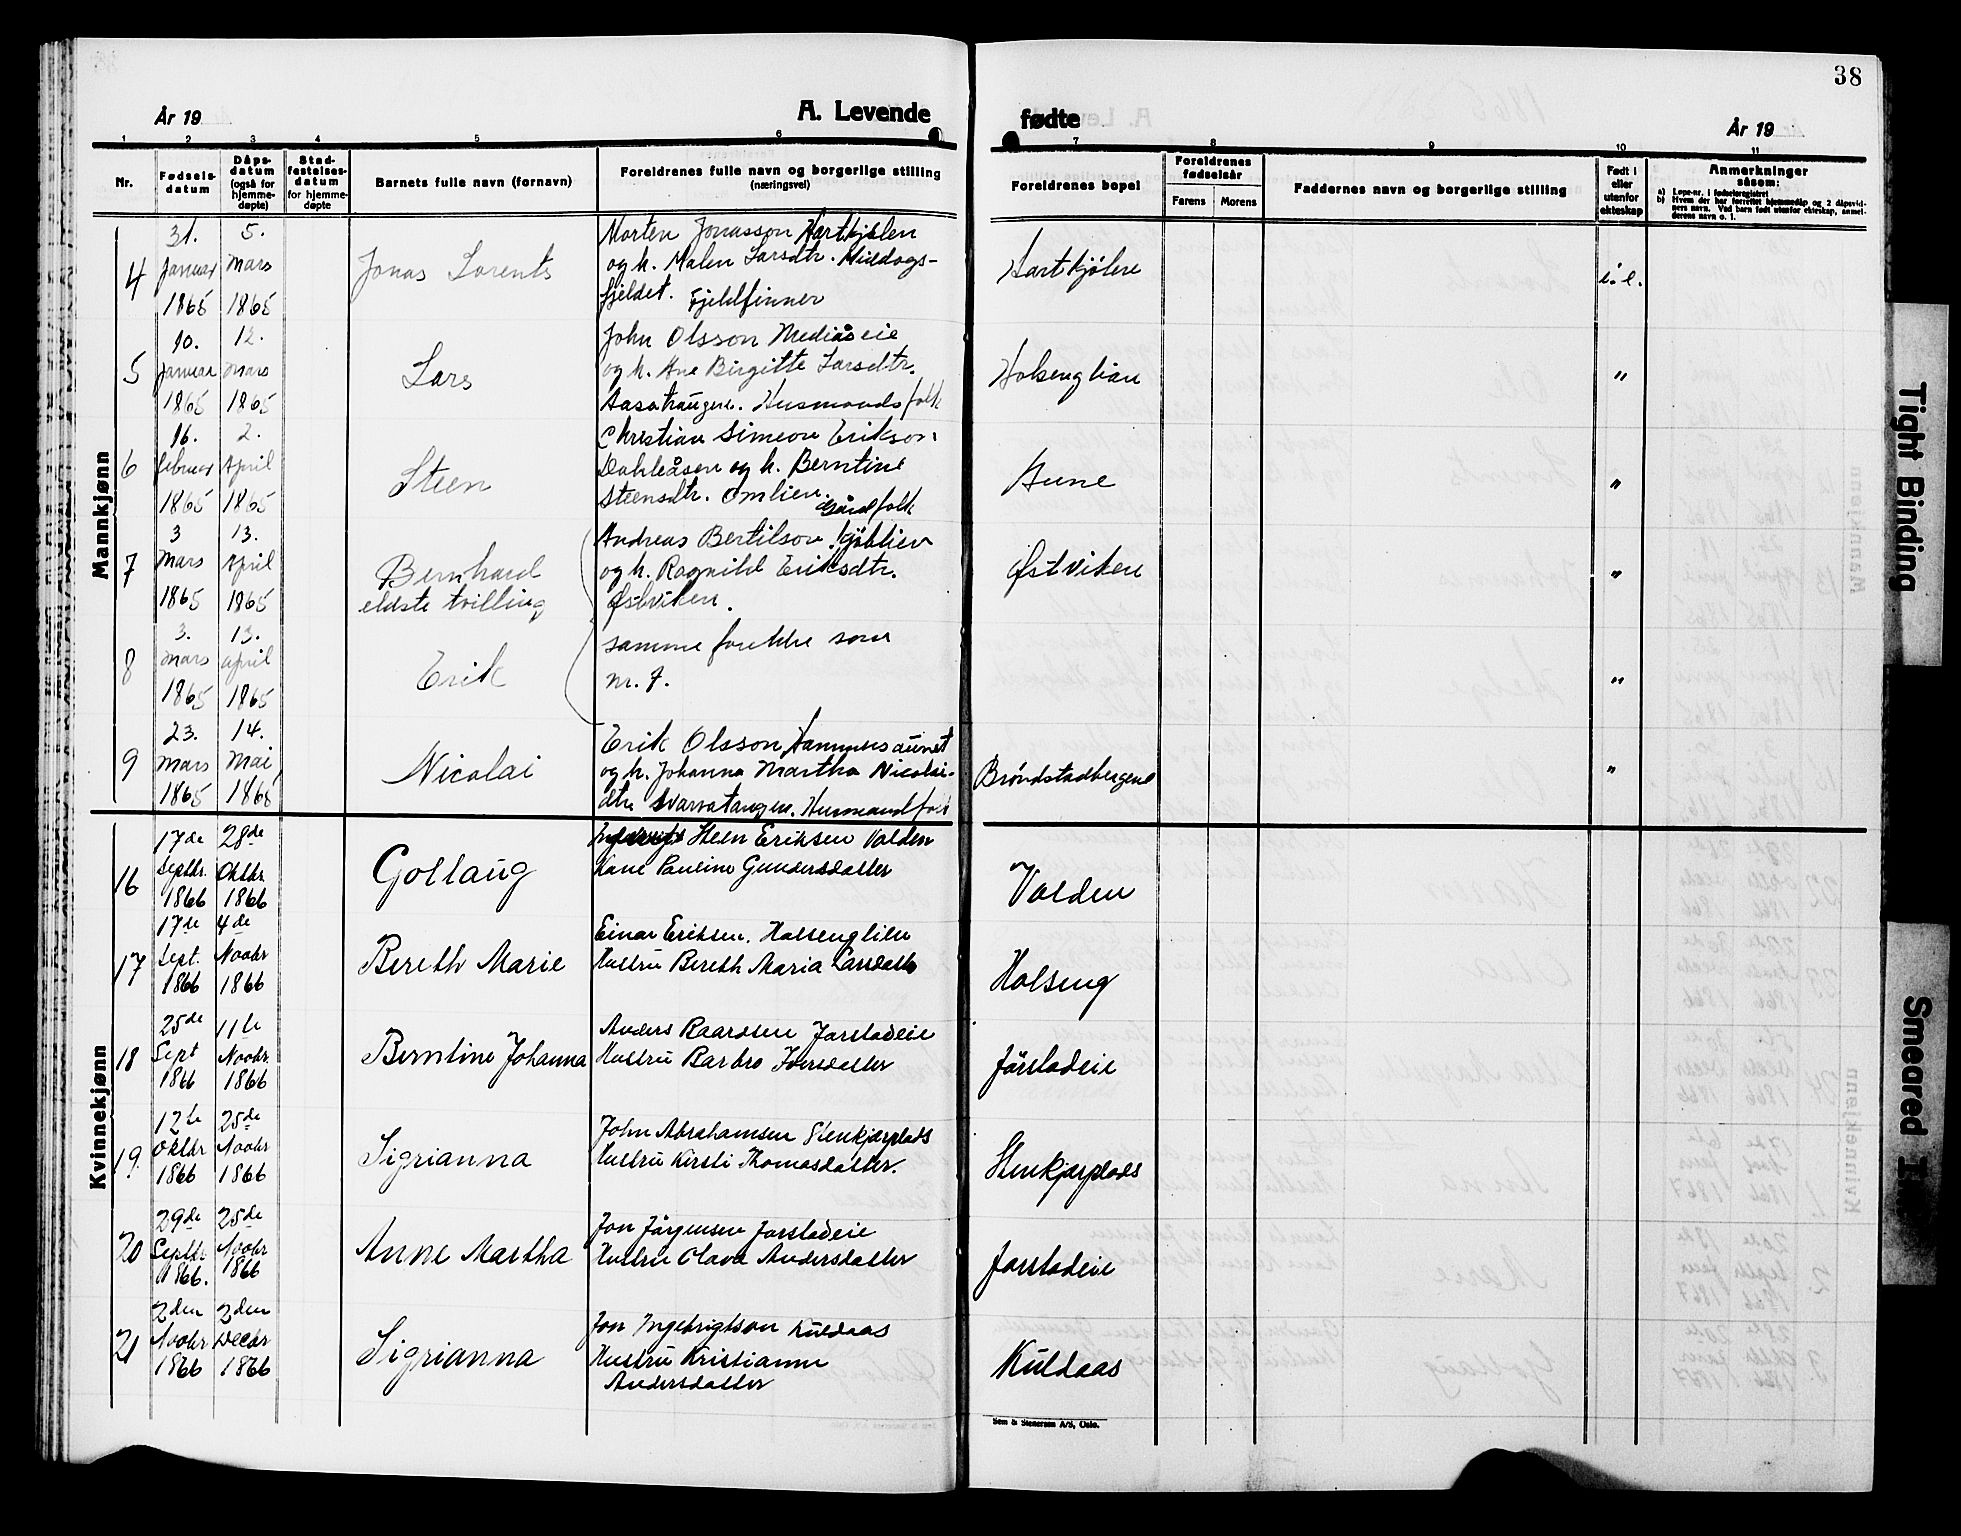 38
År 19
A. Levende
fødte
År 19
1 2 3 4 5 6 7 8 9 10 11
Nr.
Fødsels-
datum
Dåps-
datum
(også for
hjemme-
døpte)
Stad-
festelses-
datum
for hjemme-
døpte
Barnets fulle navn (fornavn)
Foreldrenes fulle navn og borgerlige stilling
(næringsvei)
Foreldrenes bopel
Foreldrenes
fødselsår
Farens Morens
Faddernes navn og borgerlige stilling
Født i
eller
utenfor
ekteskap
Anmerkninger
såsom:
a) Løpe-nr. i fødselsregistret
b) Hvem der har forrettet hjemmedåp og 2 dåpsvid-
ners navn. Ved barn født utenfor ekteskap, anmel-
derens navn o. l.
Mannkjønn
4
31.
Januar
1865
5.
Mars
1865
Jonas Lorents
Morten Jonasson Hartkjølen
og h. Malen Larsdtr. Middags-
fjeldet. Fjeldfinner
Hartkjølen
i. e.
5
10.
Januar
1865
12.
Mars
1865
Lars
John Olsson Mediåseie
og h. Ane Birgitte Larsdtr.
Husmandsfolk
Holsenglian
"
6
16.
Februar
1865
2.
April
1865
Steen
Christian Simeon Erikson
Dahleåsen og h. Berntine
Steensdtr. Omlien.
Gårdfolk
Aune
"
7
3
Mars
1865
13.
April
1865
Bernhard
eldste tvilling
Andreas Bertilson
og h. Ragnild Eriksdtr.
Østviken.
Østviken
"
8
3.
Mars
1865
13.
April
1865
Erik
samme foreldre som
nr. 7.
"
9
23.
Mars
1865
14.
Mai
1865
Nicolai
Erik Olsson Hammersaunet
og h. Johanna Martha Nicolai-
dtr. Svarvatangen. Husmandsfolk
Brøndstadbergene
"
Kvinnekjønn
16
17de
Septbr.
1866
28de
Oktbr
1866
Gollaug
Steen Eriksen Valden
Kone Pauline Gundersdatter
Valden
17
17de
Sept.
1866
4de
Novbr
1866
Bereth Marie
Einar Eriksen. Halsenglien
Hustru Bereth Maria Larsdatter
Holseng
18
25de
Sept
1866
11te
Novbr
1866
Berntine Johanna
Anders Baardsen Jarstadeie
Hustru Barbro Iversdatter
Jørstadeie
19.
12te
Oktbr
1866
25de
Novbr
1866
Sigrianna
John Abrahamsen Stenkjærplads
Hustru Kirsti Thomasdatter.
Stenkjærplads
20
29de
Septbr
1866.
25de
Novbr
1866
Anne Martha
Jon Jørgensen Jarstadeie
Hustru Olava Andersdatter
Jarstadeie
21
2den
Novbr
1866
2den
Decbr
1866
Sigrianna
Jon Ingebrigtson Kuldaas
Hustru Kristianne
Andersdatter
Kuldaas
Sem & Stenersen A/S, Oslo.
Tight Binding
Smeared I